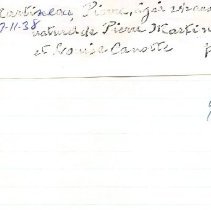 Martineau, Pierre, âgé
7-11-38 naturel de Pierre Martin
et Louise Canotte